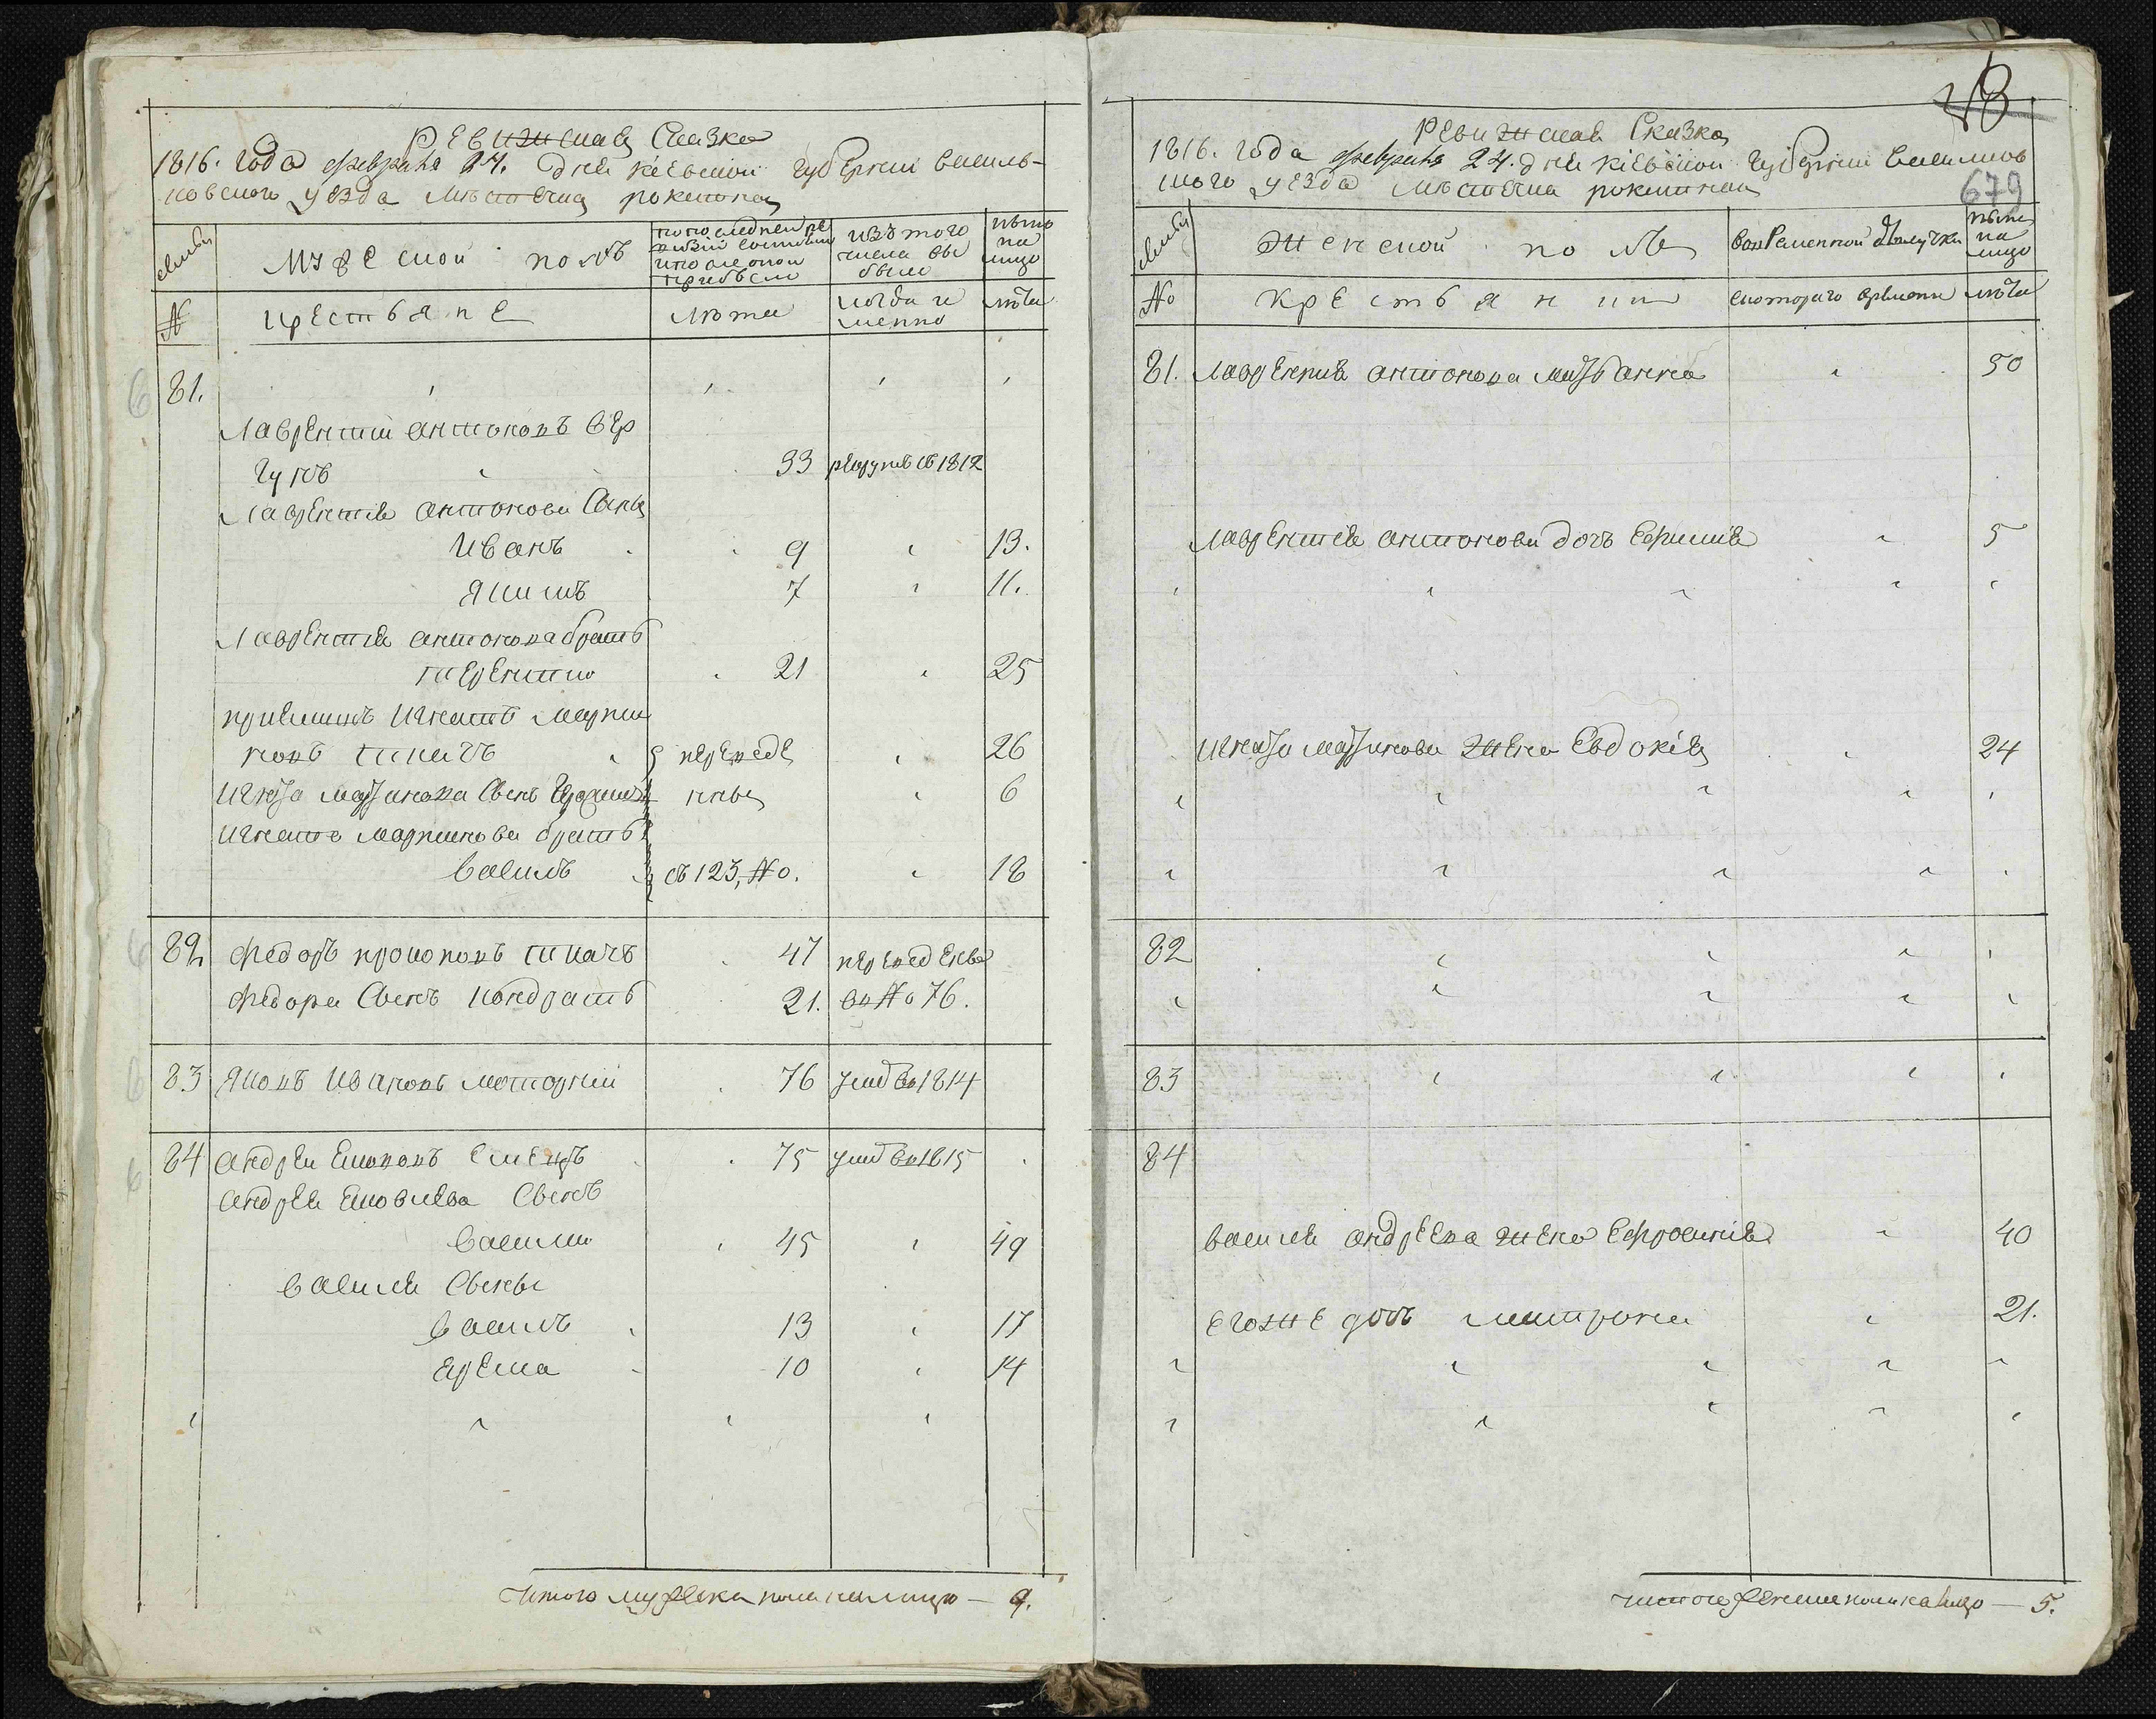 Ревижская Сказка
1816. года февраля 24. дня Кіевской губернїи василь-
ковского уезда местечка рокитной
Семьи
Мужеской полъ
по последней ре
визїи состояло
и после оной
прибыло
изъ того
числа вы
было
ныне
на
лицо
№
крестьяне
лета
когда и
менно
лета
81.
Лаврентїи антоновъ Вер
гунъ 33 рекрутъ въ 1812
Лаврентїя антонова Сыны
Иванъ 9 13.
Якимъ 7 11.
Лаврентїя антонова братъ
терентїи 21 25
прїимышъ Игнатъ Марти
новъ ткачъ переведе 26
Игната Мартинова Сынъ Герасимъ нны 6
Игната Мартинова братъ
Василь съ 123, №.  18
82 Федоръ прокоповъ ткачъ 47 переведены
Федора Сынъ Кондратъ 21. въ № 76.
83 Яковъ Ивановъ моторнїй 76 умеръ въ 1814
84 андрей 75 умеръ въ 1815
андрея Сынъ
Василїи 45 49
Василя Сыны
Василь 13 17
Ярема 10 14
Итого мужеска пола на лицо — 9.
43
679
Ревижская Сказка
1816. года февраля 24. дня Кіевской губернїи Васильков
ского уезда местечка рокитной
Семьи
Женской полъ
во временной отлучки
ныне
на
лицо
№
Крестьянки
с которого времени
лета
81. Лаврентїя антонова мать анна 50
Лаврентїя антонова дочь Ефимїя 5
Игната Мартинова жена Евдокїя 24
82
83
84
Василя андреева жена Ефросинїя 40
его же дочь Митрона 21.
Итого женска пола на лицо — 5.